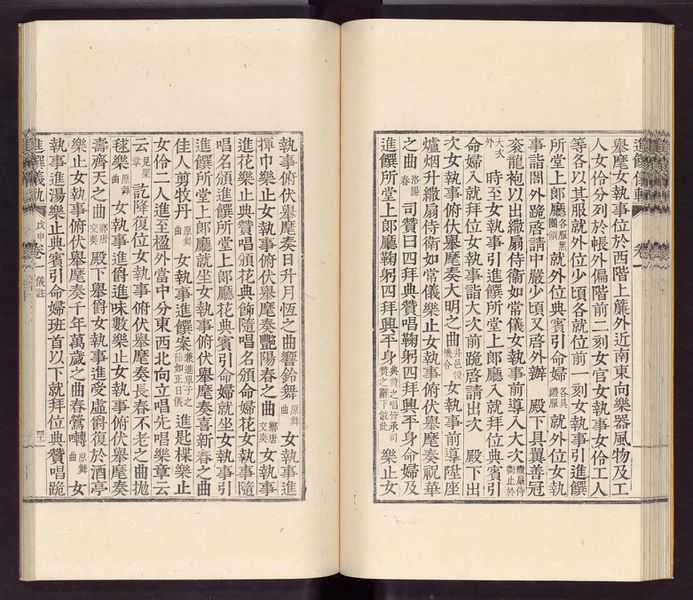 舉麾女執事位於西階上簾外近南東向樂器風物及工
人女伶分列於帳外偏階前二刻女官女執事女伶工人
等各以其服就外位少頃各就位前一刻女執事引進饌
所堂上郎廳各服黑團領就外位典賓引命婦各具禮服就外位女執
事詣閤外跪啓請中嚴少頃又啓外辦 殿下具翼善冠
袞龍袍以出繖扇侍衞如常儀女執事前導入大次繖扇侍衞止於
大次外 時至女執事引進饌所堂上郎廳入就拜位典賓引
命婦入就拜位女執事詣大次前跪啓請出次 殿下出
次女執事俯伏舉麾奏大明之曲 女執事前導陞座
爐烟升繖扇侍衞如常儀樂止女執事俯伏舉麾奏祝華
之曲洛陽春 司贊曰四拜典贊唱鞠躬四拜興平身命婦及
進饌所堂上郎廳鞠躬四拜興平身典贊之唱皆承司贊之辭下倣此 樂止女
執事俯伏舉麾奏日升月恆之曲響鈴舞原舞曲 女執事進
揮巾樂止女執事俯伏舉麾奏艷陽春之曲鄕唐交奏 女執事
進花樂止典贊唱頒花典飾隨唱名頒命婦花女執事隨
唱名頒進饌所堂上郎廳花典賓引命婦就坐女執事引
進饌所堂上郎廳就坐女執事俯伏舉麾奏喜新春之曲
佳人剪牧丹原舞曲 女執事進饌案 進匙楪樂止
女伶二人進至楹外當中分東西北向立唱先唱樂章云
云見樂章訖降復位女執事俯伏舉麾奏長春不老之曲抛
毬樂原舞曲 女執事進爵進味數樂止女執事俯伏舉麾奏
壽齊天之曲鄕唐交奏 殿下舉爵女執事進受虛爵復於酒亭
樂止女執事俯伏舉麾奏千年萬歲之曲春鶯囀原舞曲 女
執事進湯樂止典賓引命婦班首以下就拜位典贊唱跪
進饌儀軌 戊申 卷一 儀註